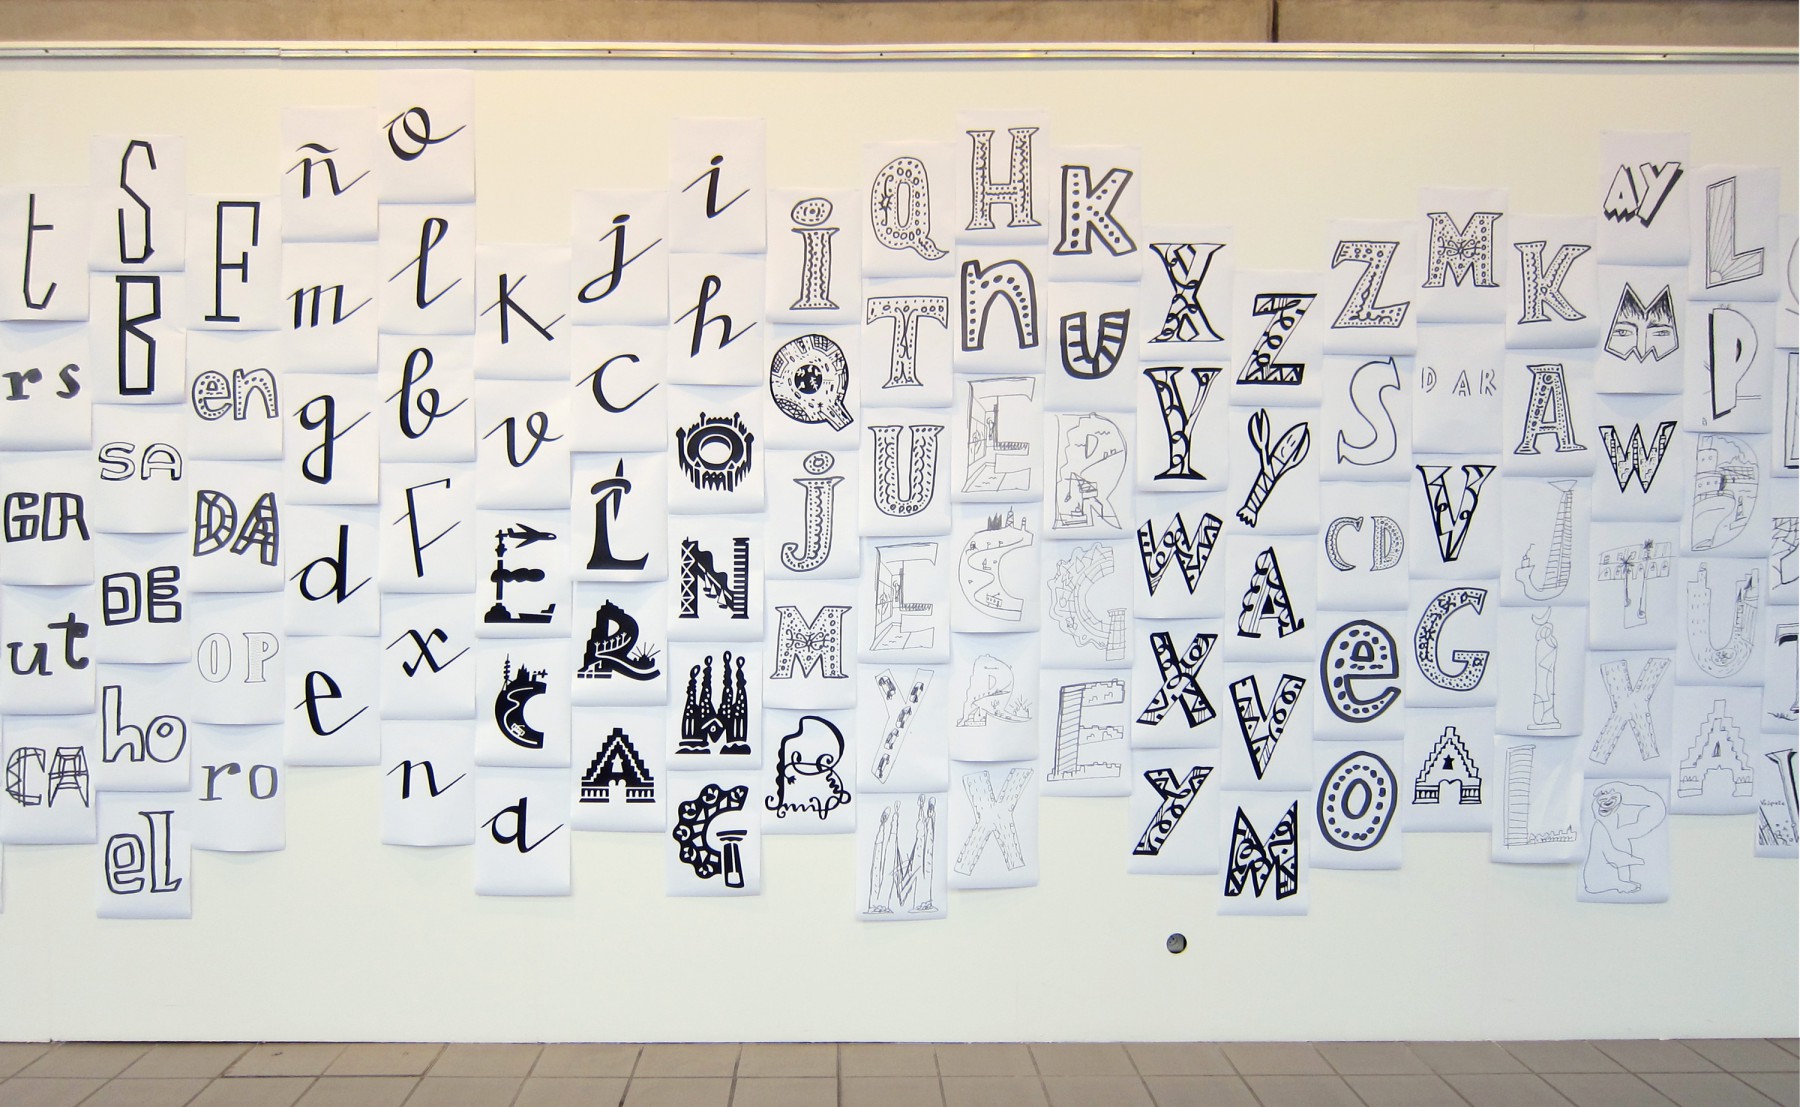 t
r s
GR
ut
CA
S
B
SA
DE
ho
el
F
en
DA
OP
ro
ñ
m
g
d
e
o
l
b
F
x
n
K
v
E
C
a
j
c
L
R
A
i
h
O
N
M
G
i
Q
j
M
B
Q
T
U
E
Y
M
H
n
E
C
R
X
K
u
R
G
E
X
Y
W
X
Y
Z
Y
A
V
M
Z
S
CD
e
O
M
DAR
V
G
A
K
A
J
I
L
AY
M
W
T
X
L
P
D
U
A